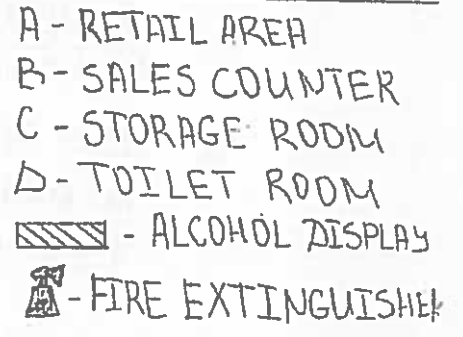 A - RETAIL AREA
B - SALES COUNTER
C - STORAGE ROOM
D - TOILET ROOM
- ALCOHOL DISPLAY
- FIRE EXTINGUISHER